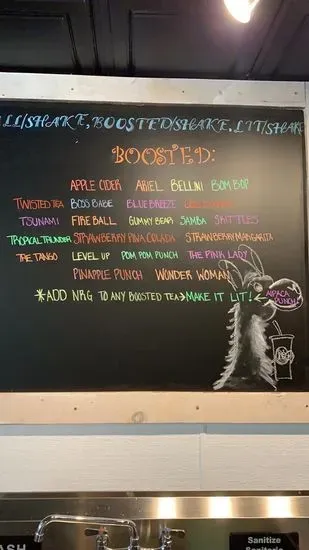 LL/SHAKE, BOOSTED/SHAKE, LIT/SHAKE
BOOSTED:
APPLE CIDER ARIEL BELLINI BOM BOP
TWISTED TEA BOSS BABE BLUE BREEZE
TSUNAMI FIRE BALL GUMMY BEAR SAMBA SKITTLES
TROPICAL THUNDER STRAWBERRY PINA COLADA STRAWBERRY MARGARITA
THE TANGO LEVEL UP POM POM PUNCH THE PINK LADY
PINAPPLE PUNCH WONDER WOMAN
*ADD NRG TO ANY BOOSTED TEA→MAKE IT LIT!
ALPACA
PUNCH!
ASH
Sanitize